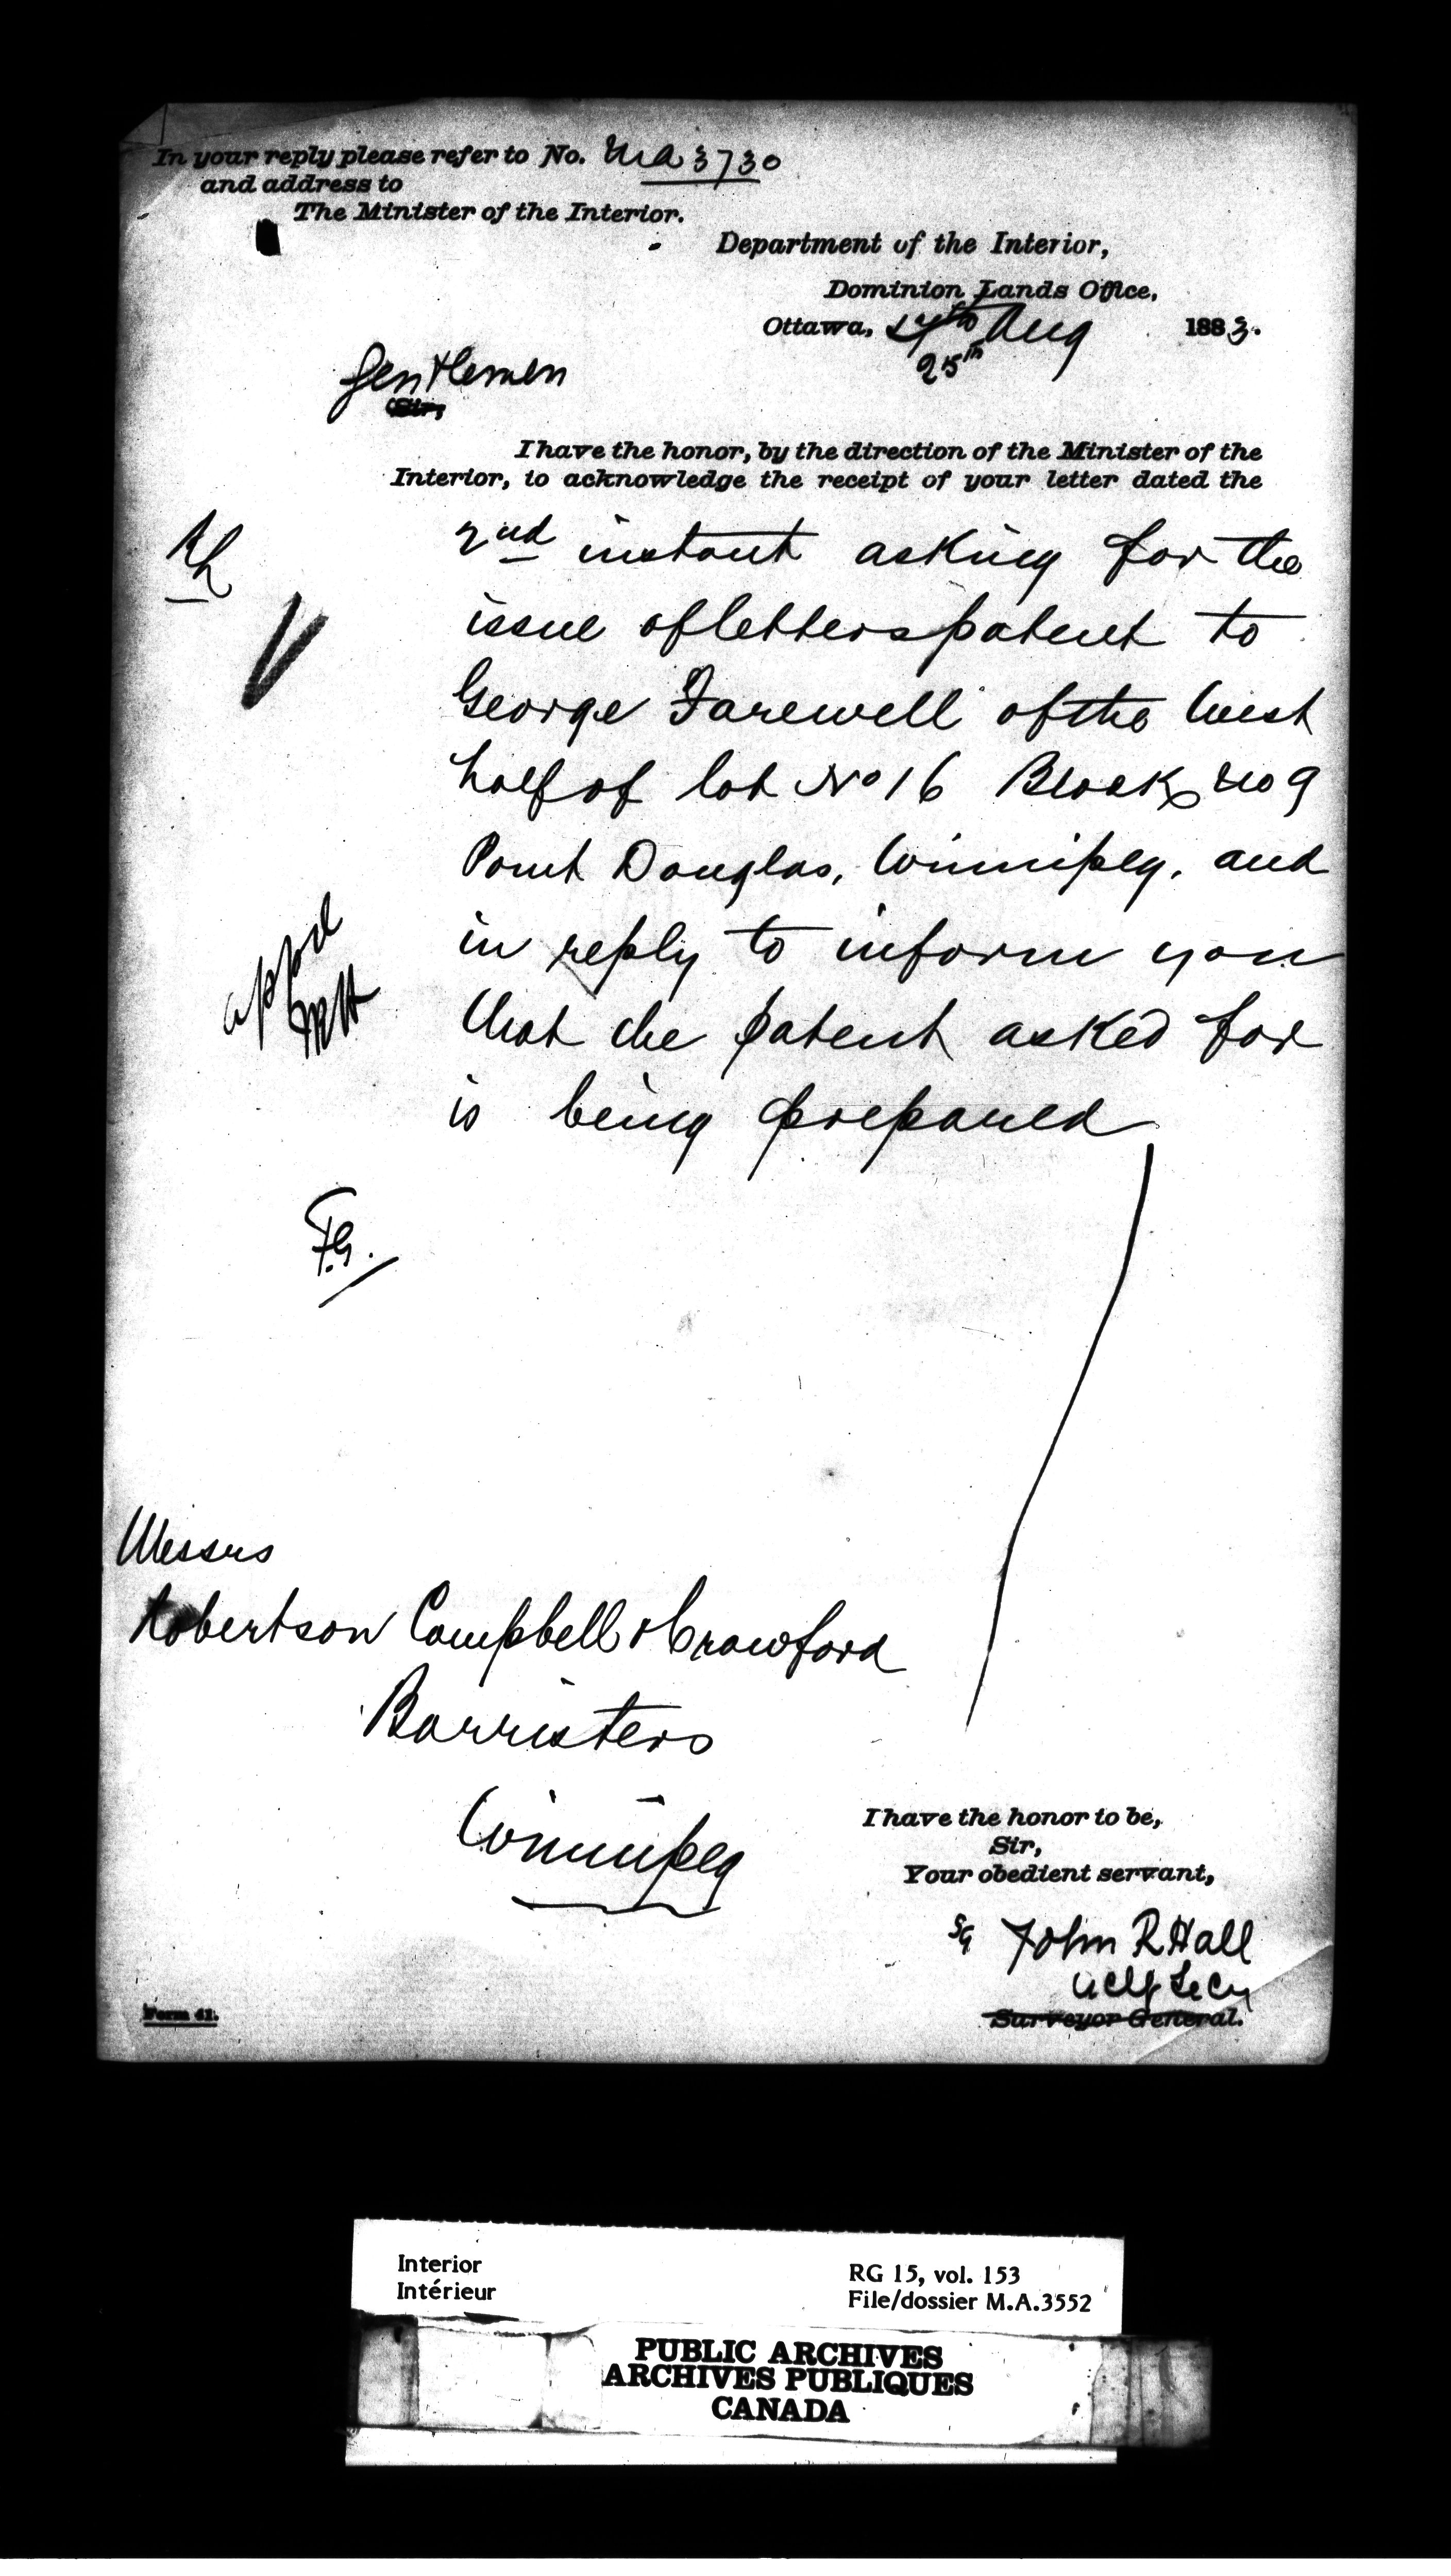 In your reply please refer to No. MA 3730
and address to
The Minister of the Interior.
Department of the Interior,
Dominion Lands Office,
Ottawa, Aug 1883.
25th
Gentlemen
Sir,
I have the honor, by the direction of the Minister of the
Interior, to acknowledge the receipt of your letter dated the
2nd instant asking for the
issue of letters patent to
George Farewell of the West
half of lot No 16 Block No 9
Point Douglas, Winnipeg, and
in reply to inform you
that the patent asked for
is being prepared
appd
JRH
F.G.
Messrs
Robertson Campbell & Crawford
Barristers
Winnipeg
I have the honor to be,
Sir,
Your obedient servant,
Sg John R Hall
Actg Secy
Surveyor General.
Form 41.
Interior
Intérieur
RG 15, vol. 153
File/dossier M.A.3552
PUBLIC ARCHIVES
ARCHIVES PUBLIQUES
CANADA